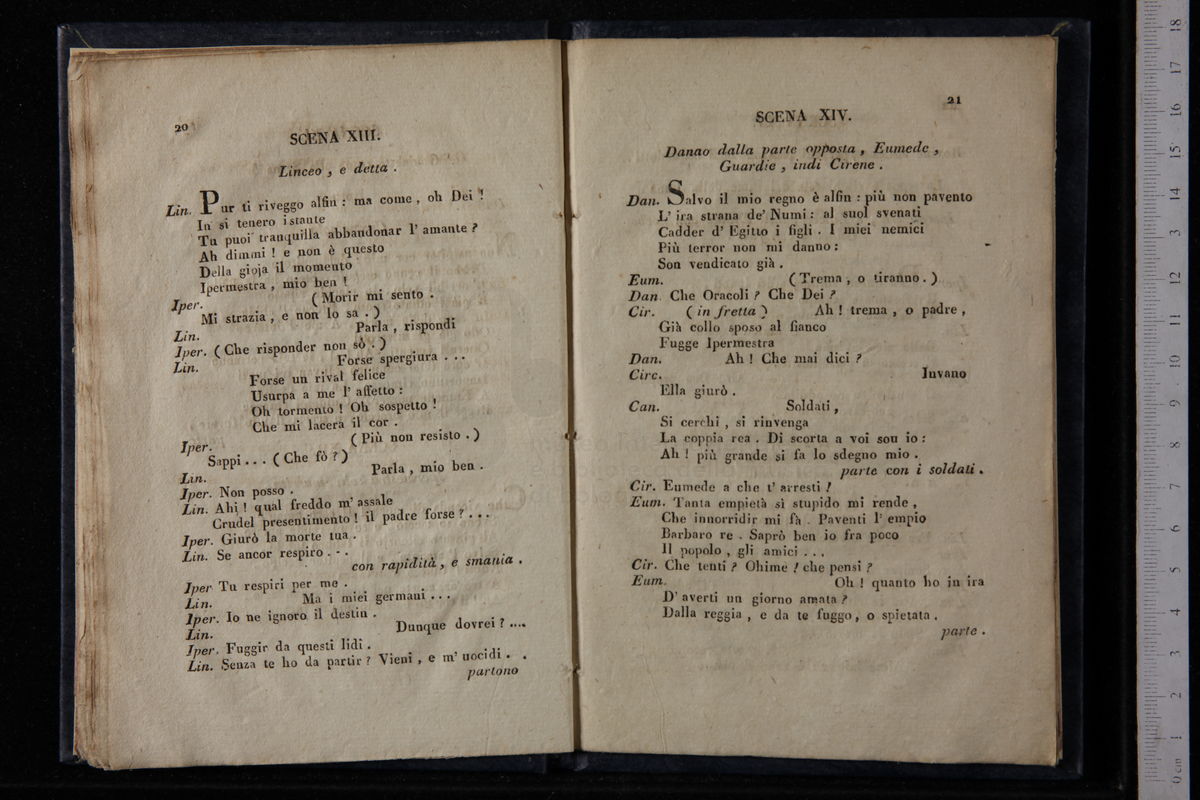 20
SCENA XIII.
Linceo , e detta .
Lin. Pur ti riveggo alfin : ma come , oh Dei !
In sì tenero istante
Tu puoi tranquilla abbandonar l' amante ?
Ah dimmi ! e non è questo
Della gioja il momento
Ipermestra , mio ben !
Iper. ( Morir mi sento .
Mi strazia , e non lo sa . )
Lin. Parla , rispondi
Iper. ( Che risponder non sò . )
Lin. Forse spergiura . . .
Forse un rival felice
Usurpa a me l' affetto :
Oh tormento ! Oh sospetto !
Che mi lacera il cor .
Iper. ( Più non resisto . )
Sappi . . . ( Che fò ? )
Lin. Parla , mio ben .
Iper. Non posso .
Lin. Ahi ! qual freddo m' assale
Crudel presentimento ! il padre forse ? . . .
Iper. Giurò la morte tua .
Lin. Se ancor respiro . - .
con rapidità , e smania .
Iper Tu respiri per me .
Lin. Ma i miei germani . . .
Iper. Io ne ignoro il destin .
Lin. Dunque dovrei ? ....
Iper. Fuggir da questi lidi .
Lin. Senza te ho da partir ? Vieni , e m' uccidi . .
partono
21
SCENA XIV.
Danao dalla parte opposta , Eumede ,
Guardie , indi Cirene .
Dan. Salvo il mio regno è alfin : più non pavento
L' ira strana de' Numi : al suol svenati
Cadder d' Egitto i figli . I miei nemici
Più terror non mi danno :
Son vendicato già .
Eum. ( Trema , o tiranno . )
Dan. Che Oracoli ? Che Dei ?
Cir. ( in fretta ) Ah ! trema , o padre ,
Già collo sposo al fianco
Fugge Ipermestra
Dan. Ah ! Che mai dici ?
Circ. Invano
Ella giurò .
Can. Soldati ,
Si cerchi , si rinvenga
La coppia rea . Di scorta a voi son io :
Ah ! più grande si fa lo sdegno mio .
parte con i soldati .
Cir. Eumede a che t' arresti !
Eum. Tanta empietà sì stupido mi rende ,
Che innorridir mi fà . Paventi l' empio
Barbaro re . Saprò ben io fra poco
Il popolo , gli amici . . .
Cir. Che tenti ? Ohime ! che pensi ?
Eum. Oh ! quanto ho in ira
D' averti un giorno amata ?
Dalla reggia , e da te fuggo , o spietata .
parte .
0 cm 1 2 3 4 5 6 7 8 9 10 11 12 13 14 15 16 17 18